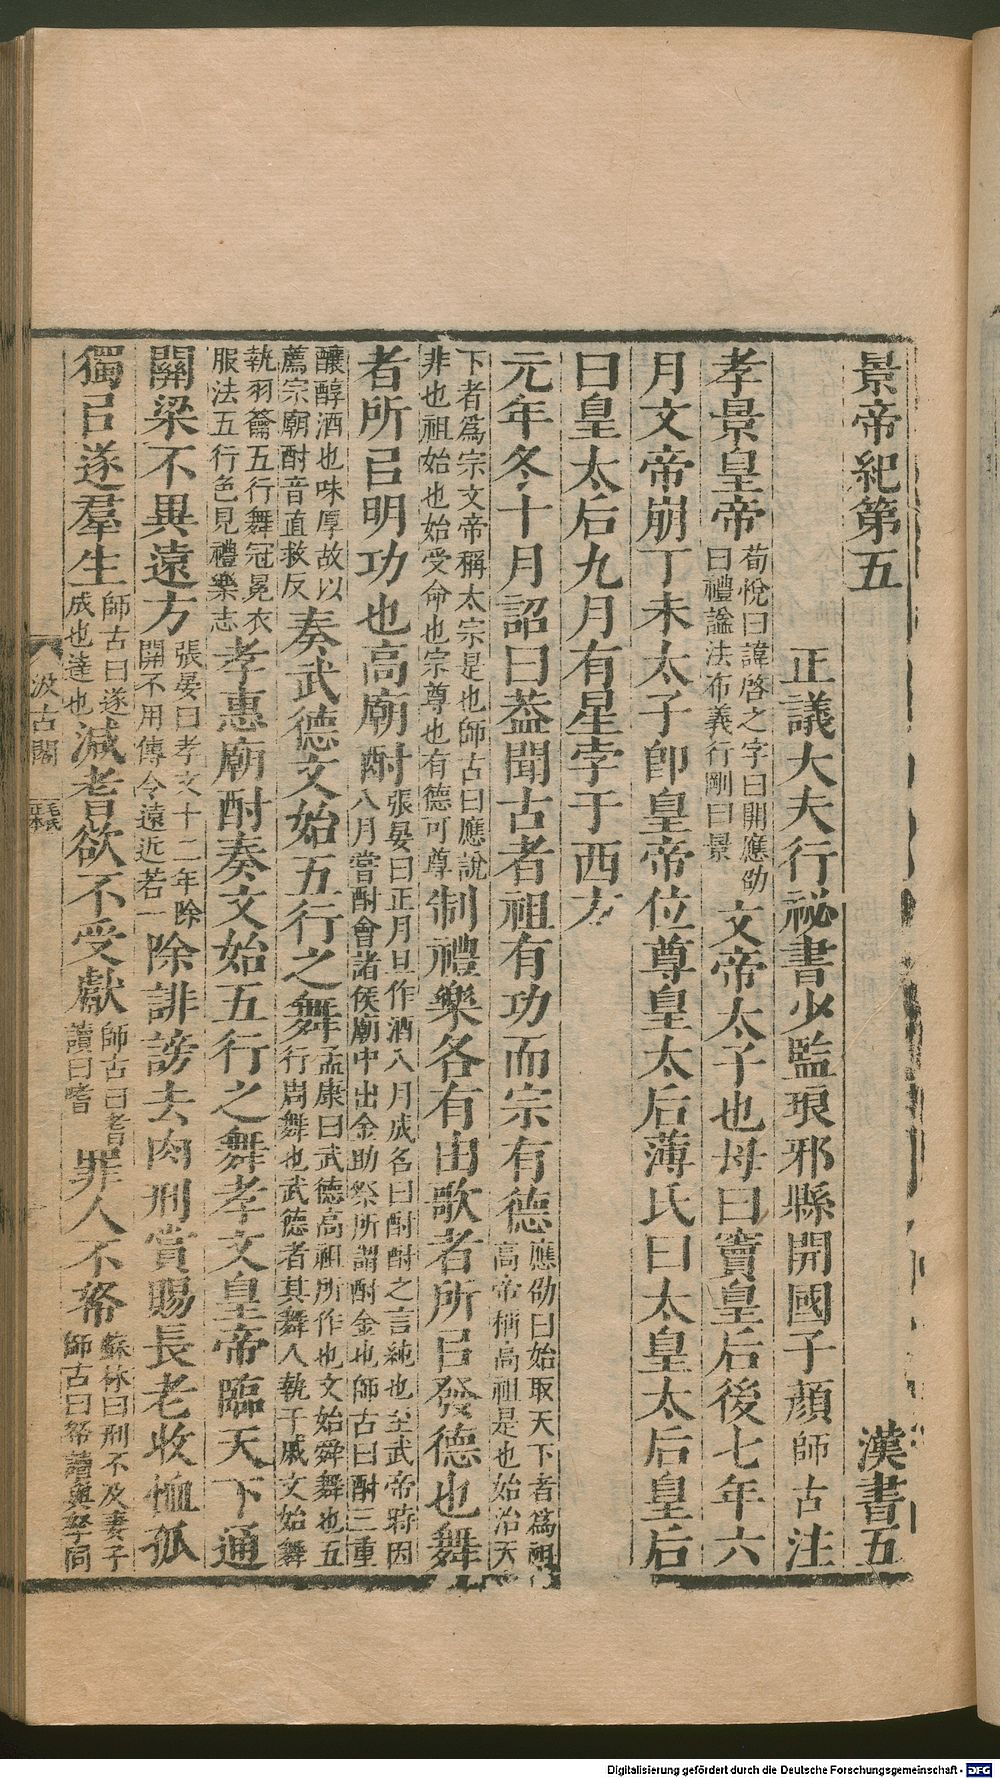 景帝紀第五　漢書五
正議大夫行祕書少監琅邪縣開國子顏師古注
孝景皇帝荀悅曰諱啓之字曰開應劭曰禮謚法布義行剛曰景文帝太子也母曰竇皇后後七年六
月文帝崩丁未太子卽皇帝位尊皇太后薄氏曰太皇太后皇后
曰皇太后九月有星孛于西方
元年冬十月詔曰葢聞古者祖有功而宗有德應劭曰始取天下者爲祖高帝稱高祖是也始治天
下者爲宗文帝稱太宗是也師古曰應說非也祖始也始受命也宗尊也有德可尊制禮樂各有由歌者所㠯發德也舞
者所㠯明功也高廟酎張晏曰正月旦作酒八月成名曰酎酎之言純也至武帝時因八月嘗酎會諸侯廟中出金助祭所謂酎金也師古曰酎三重
釀醇酒也味厚故以薦宗廟酎音直救反奏武德文始五行之舞孟康曰武德高祖所作也文始舜舞也五行周舞也武德者其舞人執干戚文始舞
執羽籥五行舞冠冕衣服法五行色見禮樂志孝惠廟酎奏文始五行之舞孝文皇帝臨天下通
關梁不異遠方張晏曰孝文十二年除關不用傳令遠近若一除誹謗去肉刑賞賜長老收恤孤
獨㠯遂羣生師古曰遂成也達也減耆欲不受獻師古曰耆讀曰嗜罪人不帑蘇林曰刑不及妻子師古曰帑讀與孥同
汲古閣
毛氏正本
Digitalisierung gefördert durch die Deutsche Forschungsgemeinschaft - DFG